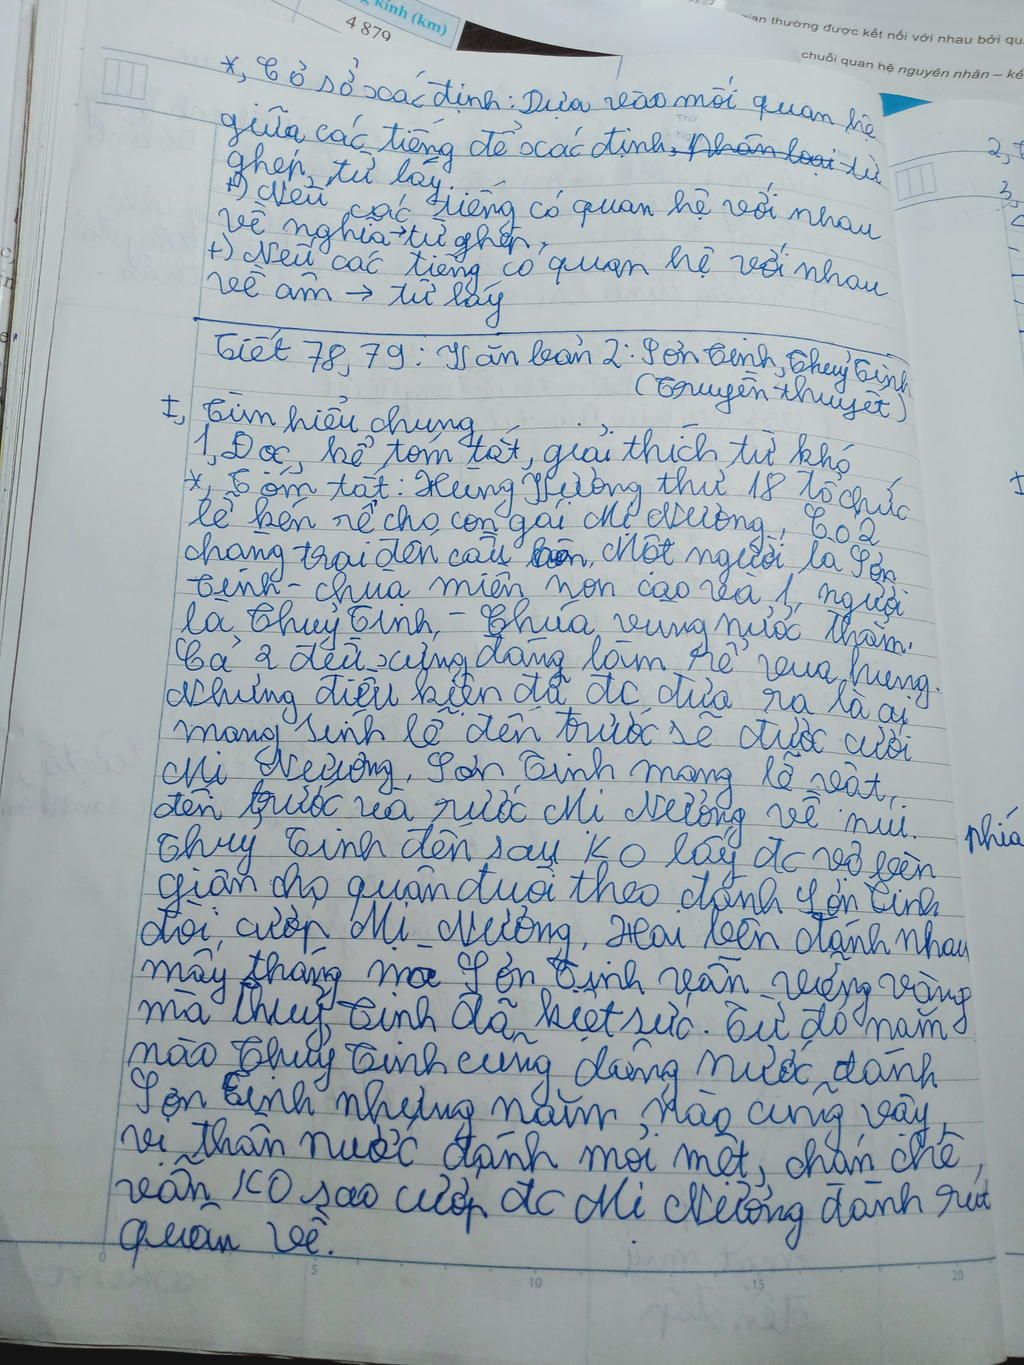 g kính (km)
4 879
gian thường được kết nối với nhau bởi qu
chuỗi quan hệ nguyên nhân – kế
*, Cơ sở xác định: Dựa vào mối quan hệ
giữa các tiếng để xác định, phân loại từ
ghép, từ láy.
+) Nếu các tiếng có quan hệ với nhau
về nghĩa → từ ghép,
+) Nếu các tiếng có quan hệ với nhau
về âm → từ láy
Tiết 78, 79: Văn bản 2: Sơn Tinh, Thuỷ Tinh
(Truyền thuyết)
I, Tìm hiểu chung
1, Đọc, kể tóm tắt, giải thích từ khó
*, Tóm tắt: Hùng Vương thứ 18 tổ chức
lễ kén rể cho con gái Mị Nương, Có 2
chàng trai đến cầu hôn, Một người là Sơn
Tinh - chúa miền non cao và 1 người
là Thuỷ Tinh, - Chúa vùng nước thẳm.
Cả 2 đều xứng đáng làm rể vua hùng.
Nhưng điều kiện đã đc đưa ra là ai
mang sính lễ đến trước sẽ được cưới
Mị Nương, Sơn Tinh mang lễ vật,
đến trước và rước Mị Nương về núi.
Thuỷ Tinh đến sau KO lấy đc vợ bèn
giận cho quân đuổi theo đánh Sơn Tinh
đòi, cướp Mị Nương, Hai bên đánh nhau
mấy tháng mà Sơn Tinh vẫn vững vàng
mà Thuỷ Tinh đã kiệt sức. Từ đó năm
nào Thuỷ Tinh cũng dâng nước đánh
Sơn Tinh nhưng năm nào cũng vậy,
vị thần nước đánh mỏi mệt, chán chê,
vẫn KO sao cướp đc Mị Nương đành rút
quân về.
phía
2,
3,
0
5
10
15
20